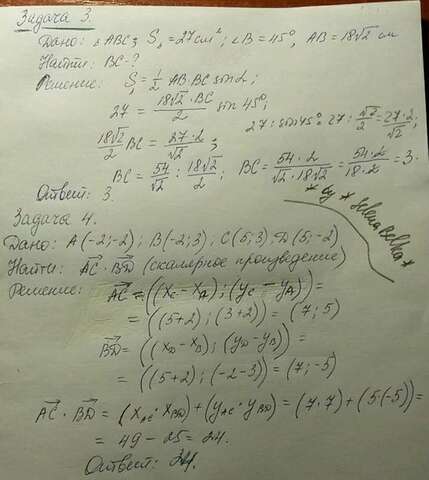 Задача 3.
Дано: △ABC; S△ = 27 см²; ∠B = 45°, AB = 18√2 см
Найти: BC - ?
Решение: S△ = 1/2 AB·BC sin∠;
27 = 18√2·BC/2 sin 45°;
27 : sin 45° = 27 : √2/2 = 27·2/√2;
18√2/2 BC = 27·2/√2;
BC = 54/√2 : 18√2/2; BC = 54·2/√2·18√2 = 54·2/18·2 = 3.
Ответ: 3.
* by * Selena Belka *
Задача 4.
Дано: A(-2;-2); B(-2;3), C(5;3), D(5;-2)
Найти: AC · BD (скалярное произведение)
Решение: AC = ((xC - xA); (yC - yA)) =
= ((5+2); (3+2)) = (7; 5)
BD = ((xD - xB); (yD - yB)) =
= ((5+2); (-2-3)) = (7; -5)
AC · BD = (xAC · xBD) + (yAC · yBD) = (7·7) + (5(-5)) =
= 49 - 25 = 24.
Ответ: 24.